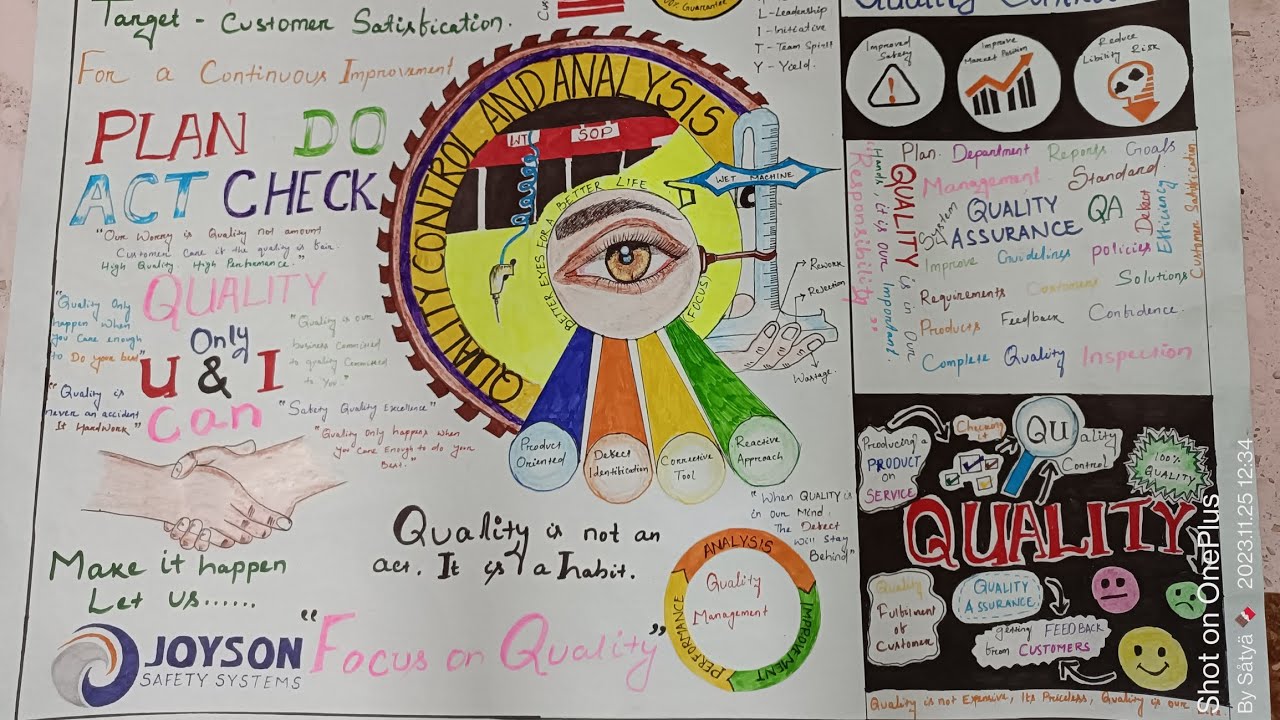 Target - Customer Satisfication.
For a Continuous Improvement
PLAN DO
ACT CHECK
"Our Worry is Quality not amount
Customer Care it the quality is fair.
High Quality High Performance."
QUALITY
Only
U & I
Can
"Quality Only
happen when
you Care enough
to Do your best"
"Quality is our
business committed
to quality Committed
to You."
"Quality is
never an accident
It Hardwork"
"Safety Quality Excellence"
"Quality Only happens when
you Care Enough to do your
Best."
Make it happen
Let us......
JOYSON
SAFETY SYSTEMS
"Focus on Quality"
Quality is not an
act. It is a habit.
QUALITY CONTROL AND ANALYSIS
WT
SOP
WET MACHINE
BETTER EYES FOR A BETTER LIFE
(FOCUS)
Rework
Rejection
Wastage.
Product
Oriented
Defect
Identification
Corrective
Tool
Reactive
Approach
"When QUALITY is
in our Mind.
The Defect
Will Stay
Behind"
ANALYSIS
IMPROVEMENT
PERFORMANCE
Quality
Management
Guarantee
L - Leadership
I - Initiative
T - Team Spirit
Y - Yield.
Quality
Improved
Safety
Improve
Market Position
Reduce
Libility Risk
"Responsibility"
QUALITY is in Our
Hands it is our Important.
Plan. Department Reports Goals
Management Standard.
System QUALITY
ASSURANCE QA
Defect
Efficiency
Customer Satisfication
Improve Guidelines policies
Requirements Customers Solutions
Products Feedback Confidence.
Complete Quality Inspection
Producing a
PRODUCT
on
SERVICE
Checking
it
QUality
Control
100%
QUALITY
QUALITY
Quality
Fulfilment
of
Customer
QUALITY
ASSURANCE
getting FEEDBACK
from CUSTOMERS
Quality is not Expensive, Its Priceless, Quality is our
Shot on OnePlus
By Sâtyä 2023.11.25 12:34